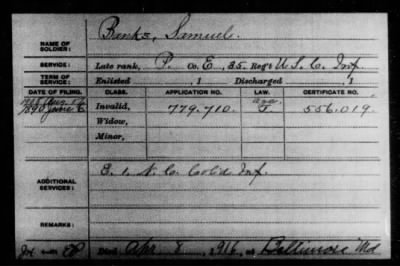 Banks, Samuel.
NAME OF SOLDIER:
SERVICE: Late rank, P. Co. E, 35 Reg't U.S.C. Inf.
TERM OF SERVICE: Enlisted , 1 Discharged , 1
DATE OF FILING. CLASS. APPLICATION NO. LAW. CERTIFICATE NO.
1890 June Invalid, 779.710. F. 556.019.
Widow,
Minor,
ADDITIONAL SERVICES: E. 1. N.C. Col'd Inf.
REMARKS:
Died Apr 8, 1916, at Baltimore Md